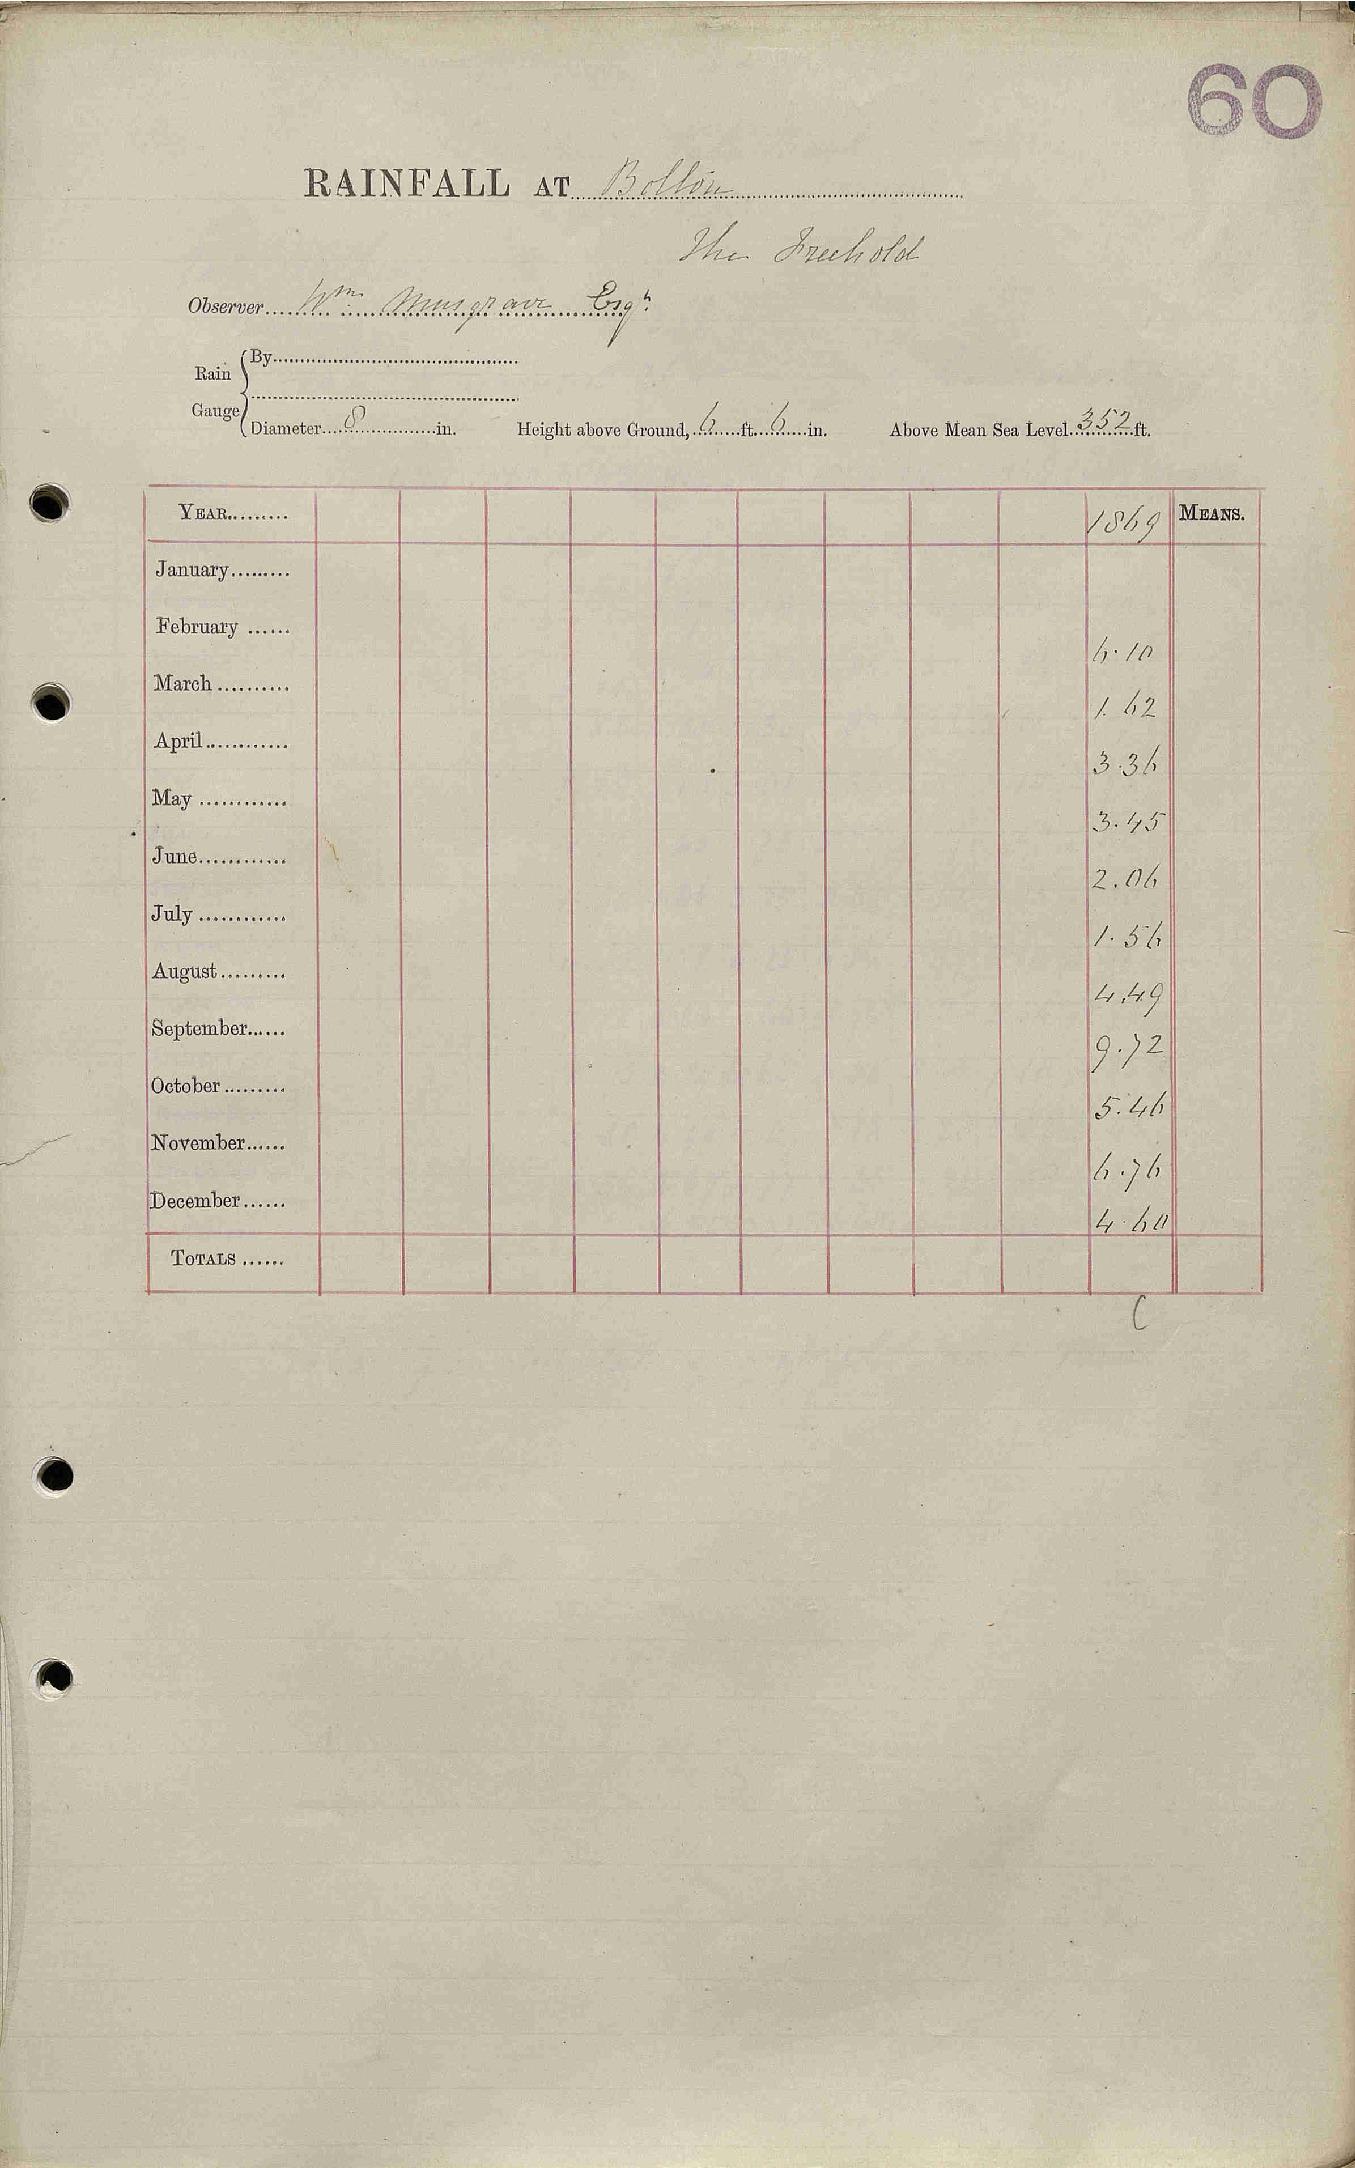 60
RAINFALL AT Bolton
The Freehold
Observer Wm Musgrave Esqr.
Rain Gauge { By
Diameter 8 in. Height above Ground, 6 ft. 6 in. Above Mean Sea Level 352 ft.
YEAR 1869 MEANS.
January
February 6.10
March 1.62
April 3.36
May 3.45
June 2.06
July 1.56
August 4.49
September 9.72
October 5.46
November 6.76
December 4.60
TOTALS
C